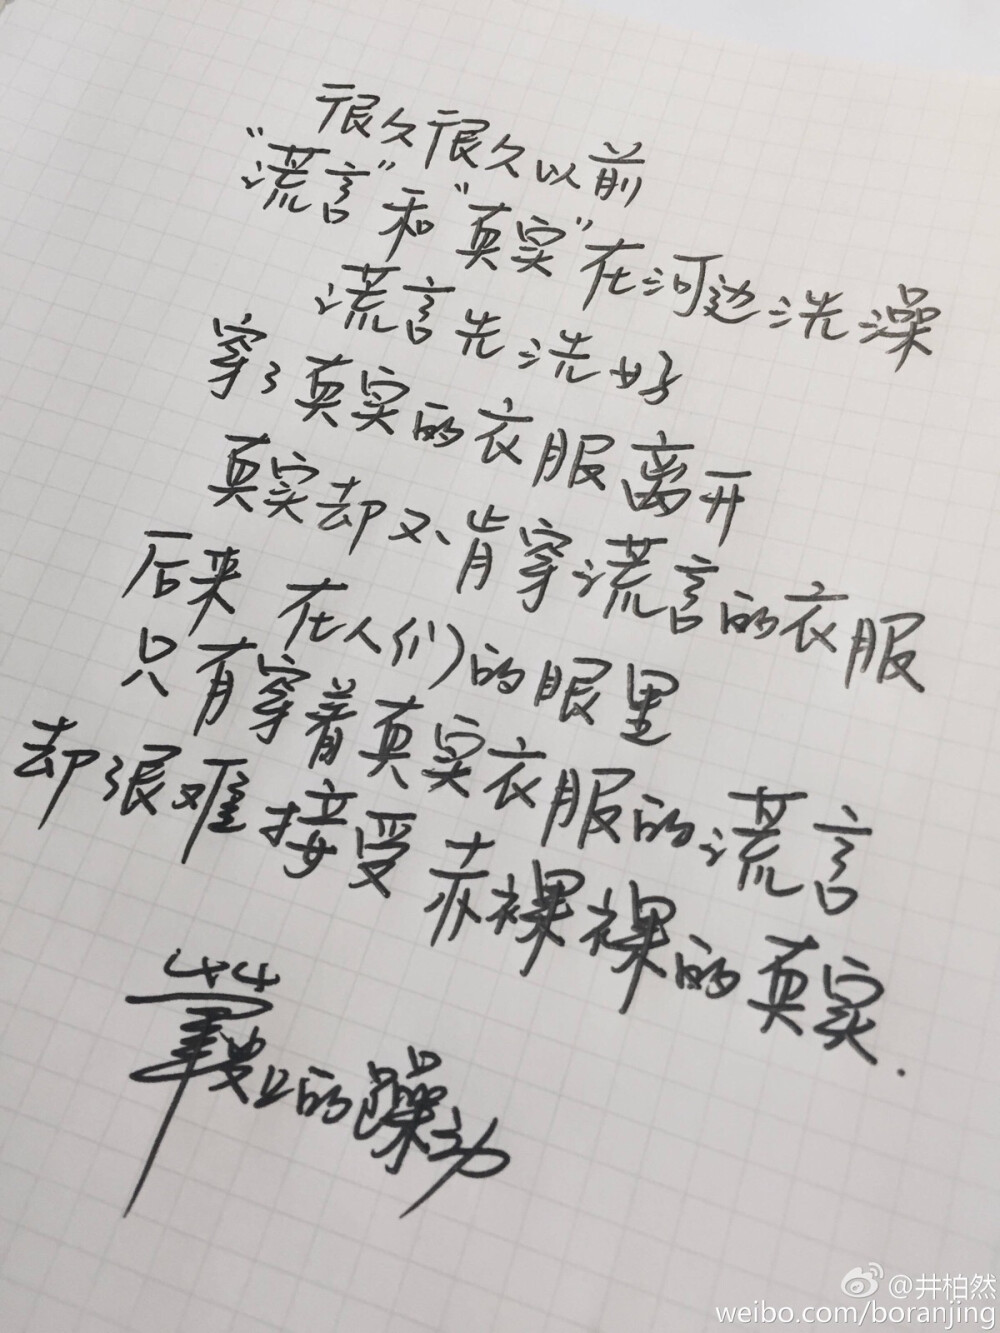 很久很久以前
“谎言”和“真实”在河边洗澡
谎言先洗好
穿了真实的衣服离开
真实却不肯穿谎言的衣服
后来 在人们的眼里
只有穿着真实衣服的谎言
却很难接受赤裸裸的真实.
的躁动
@井柏然
weibo.com/boranjing